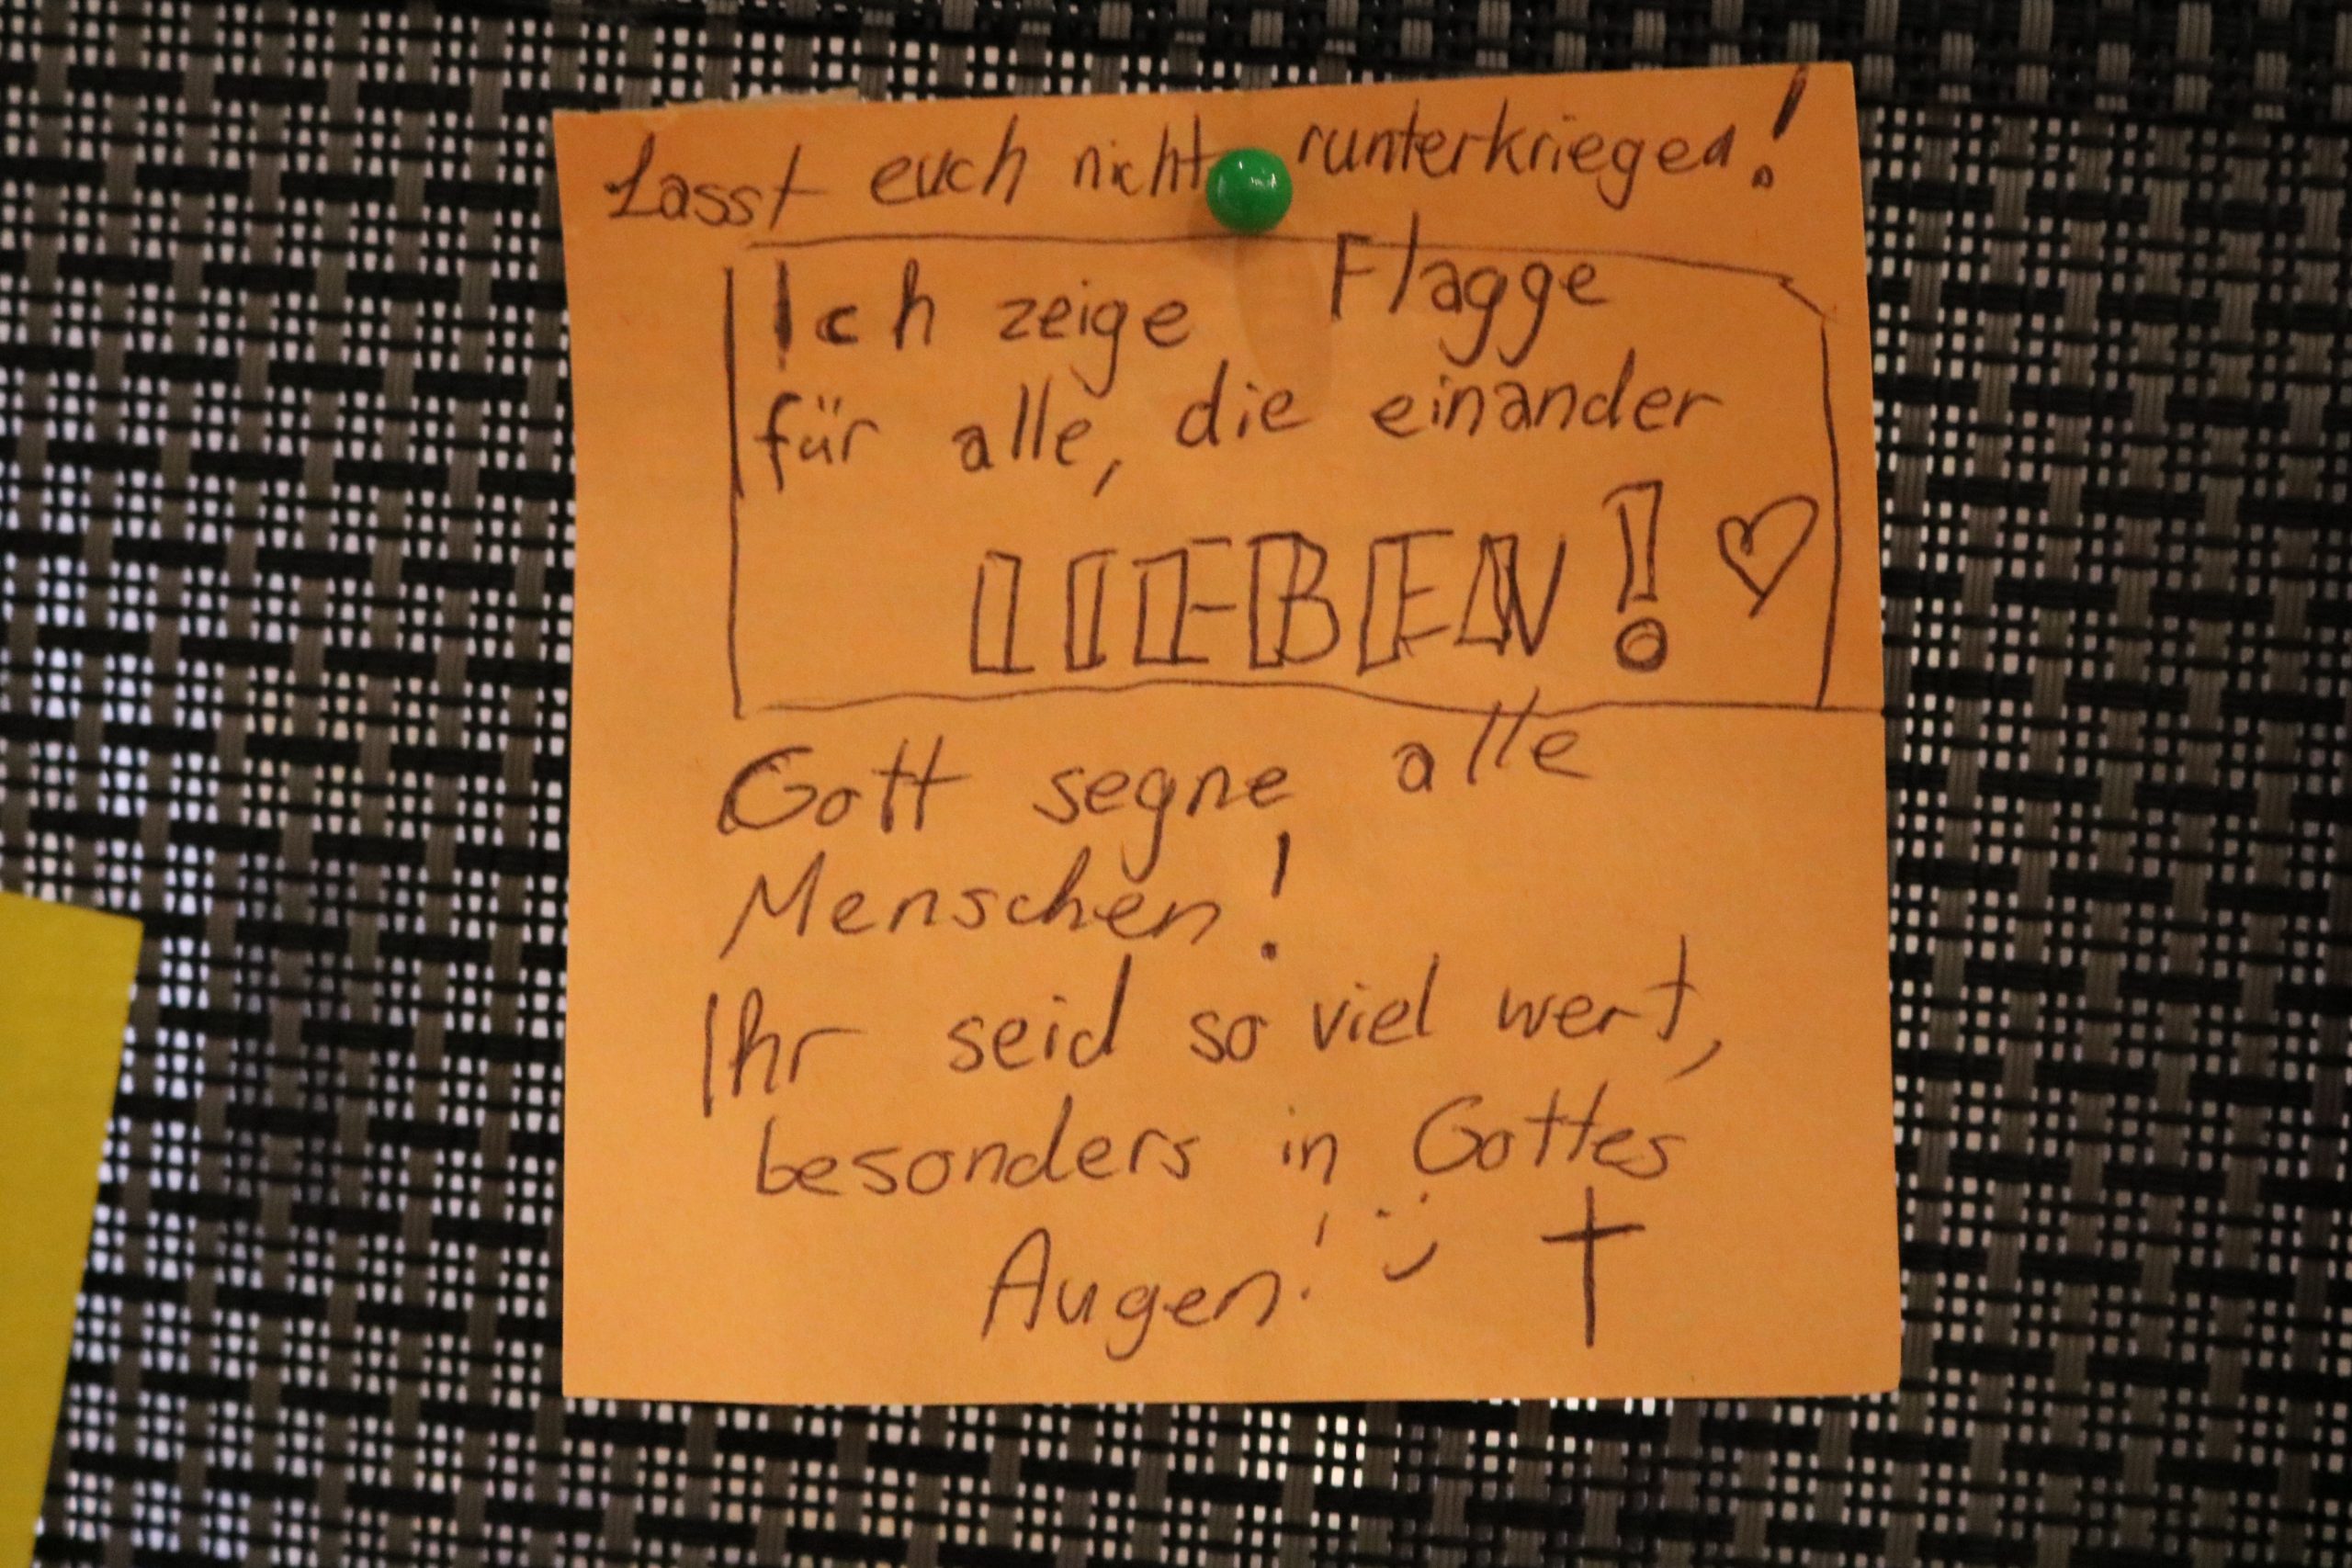 Lasst euch nicht runterkriegen!
Ich zeige Flagge
für alle, die einander
LIEBEN! ♡
Gott segne alle
Menschen!
Ihr seid so viel wert,
besonders in Gottes
Augen! :) †